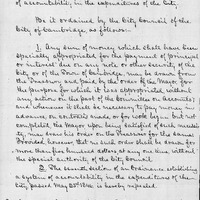 of accountability, in the expenditures of the City.
Be it ordained by the City Council of the
City of Cambridge, as follows:-
1. Any sum of money which shall have been
specially appropriated for the payment of principal
or interest due on any note or other security of the
City, or of the Town of Cambridge, may be drawn from
the Treasurer and paid by the order of the Mayor for
the purpose for which it was appropriated without
any action on the part of the Committee on Accounts;
and whenever it shall be necessary to pay money in
advance, on contracts made or for work begun but not
completed, the Mayor upon being satisfied of such necessi-
ty, may draw his order on the Treasurer for the same;
Provided however, that no such order shall be drawn for
more than five hundred dollars at any one time without
the special authority of the City Council.
2. The seventh section of an Ordinance establishing
a system of accountability in the expenditures of the
City, passed May 23d 1846, is hereby repealed.